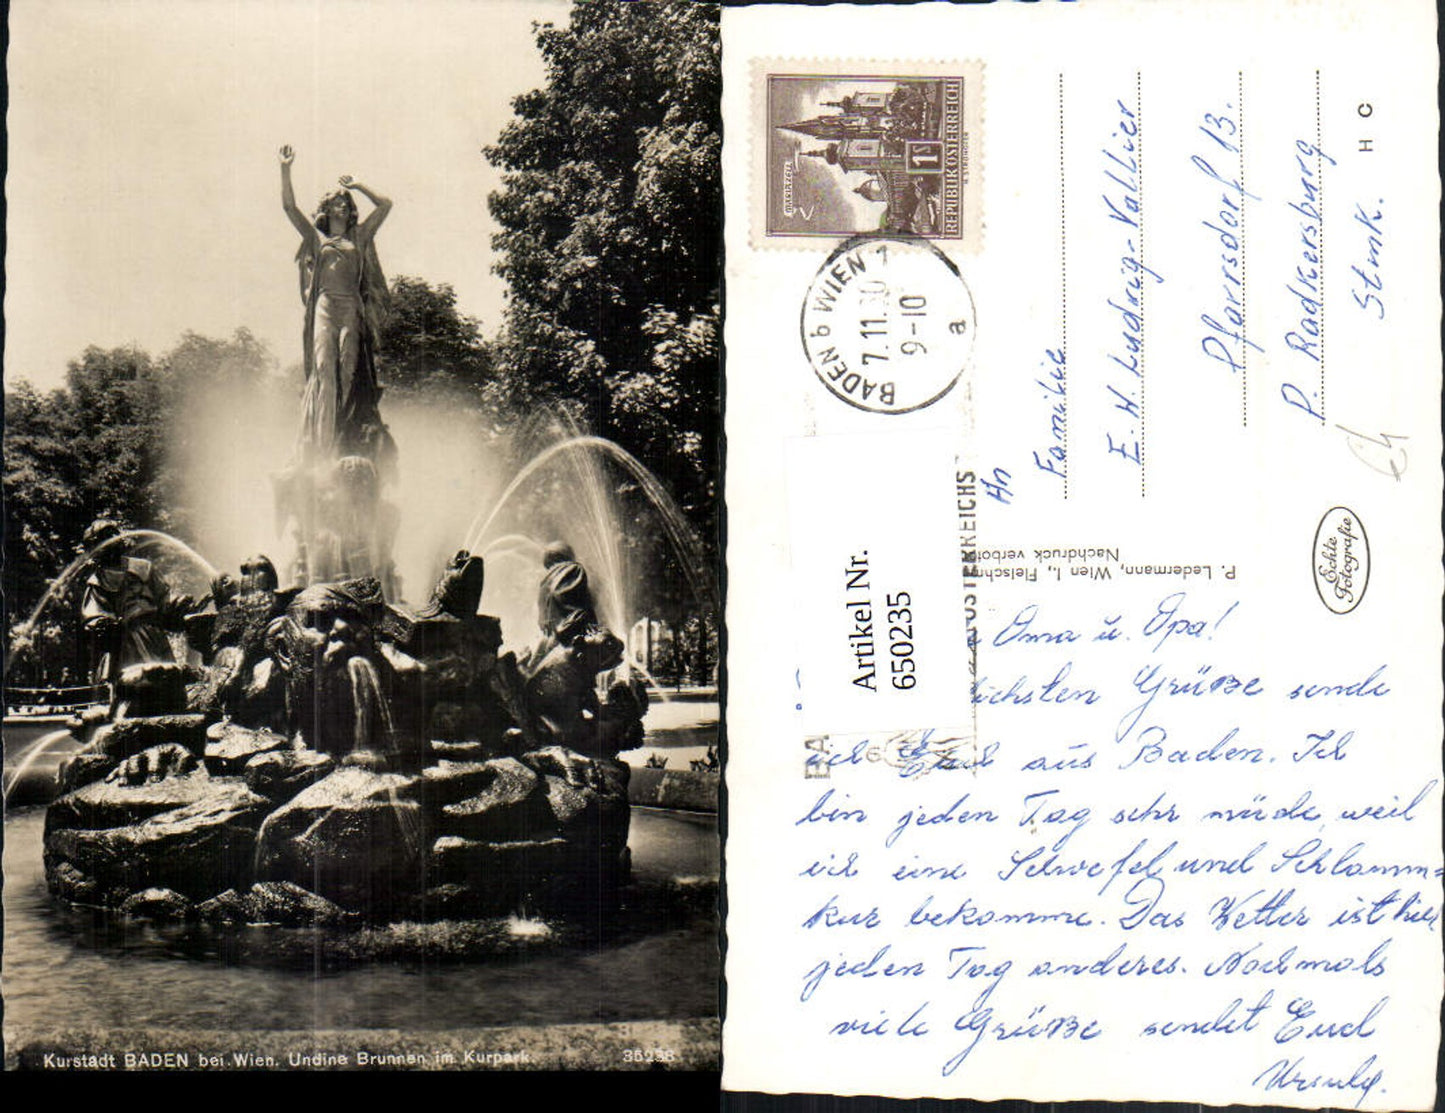 Kurstadt BADEN bei Wien. Undine Brunnen im Kurpark.
35238
MARIAZELL
1S
REPUBLIK ÖSTERREICH
BADEN b WIEN 1
7.11.60
9-10
a
ÖSTERREICHS
BA
Artikel Nr.
650235
An
Familie
E. H. Ludwig-Vallier
Pfarrsdorf 13.
P. Radkersburg
Stmk.
H C
P. Ledermann, Wien I., Fleischm
Nachdruck verbot
Echte
Fotografie
Oma u. Opa!
ichsten Grüße sende
ich Euch aus Baden. Ich
bin jeden Tag sehr müde, weil
ich eine Schwefel und Schlamm=
kur bekomme. Das Wetter ist hier
jeden Tag anderes. Nochmals
viele Grüße sendet Euch
Ursula.